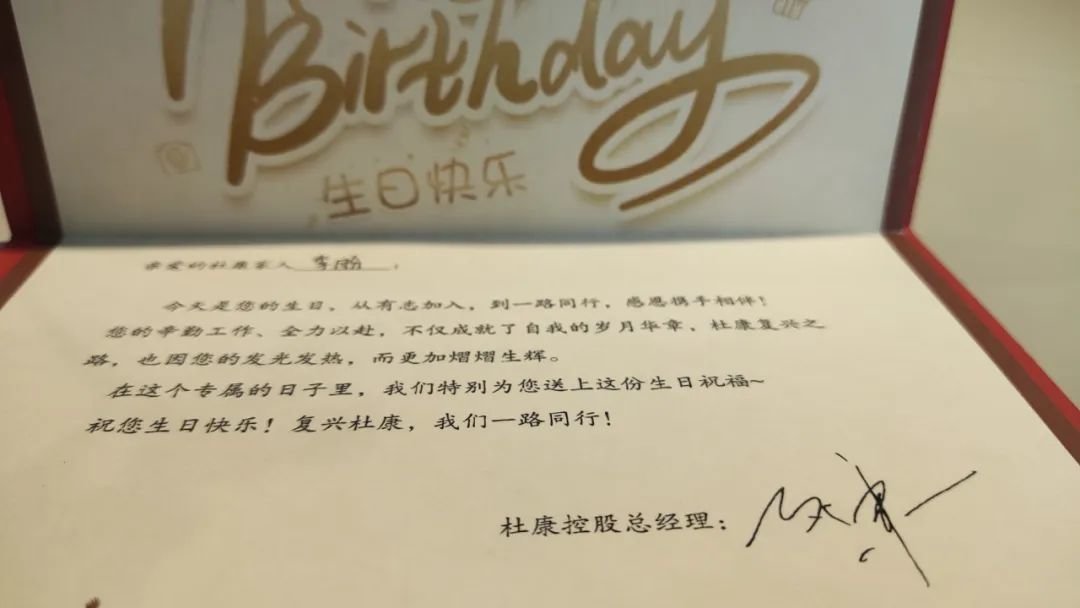 Birthday
生日快乐
亲爱的杜康家人
今天是您的生日，从有志加入，到一路同行，感恩携手相伴！
您的辛勤工作、全力以赴，不仅成就了自我的岁月华章，杜康复兴之
路，也因您的发光发热，而更加熠熠生辉。
在这个专属的日子里，我们特别为您送上这份生日祝福~
祝您生日快乐！复兴杜康，我们一路同行！
杜康控股总经理：